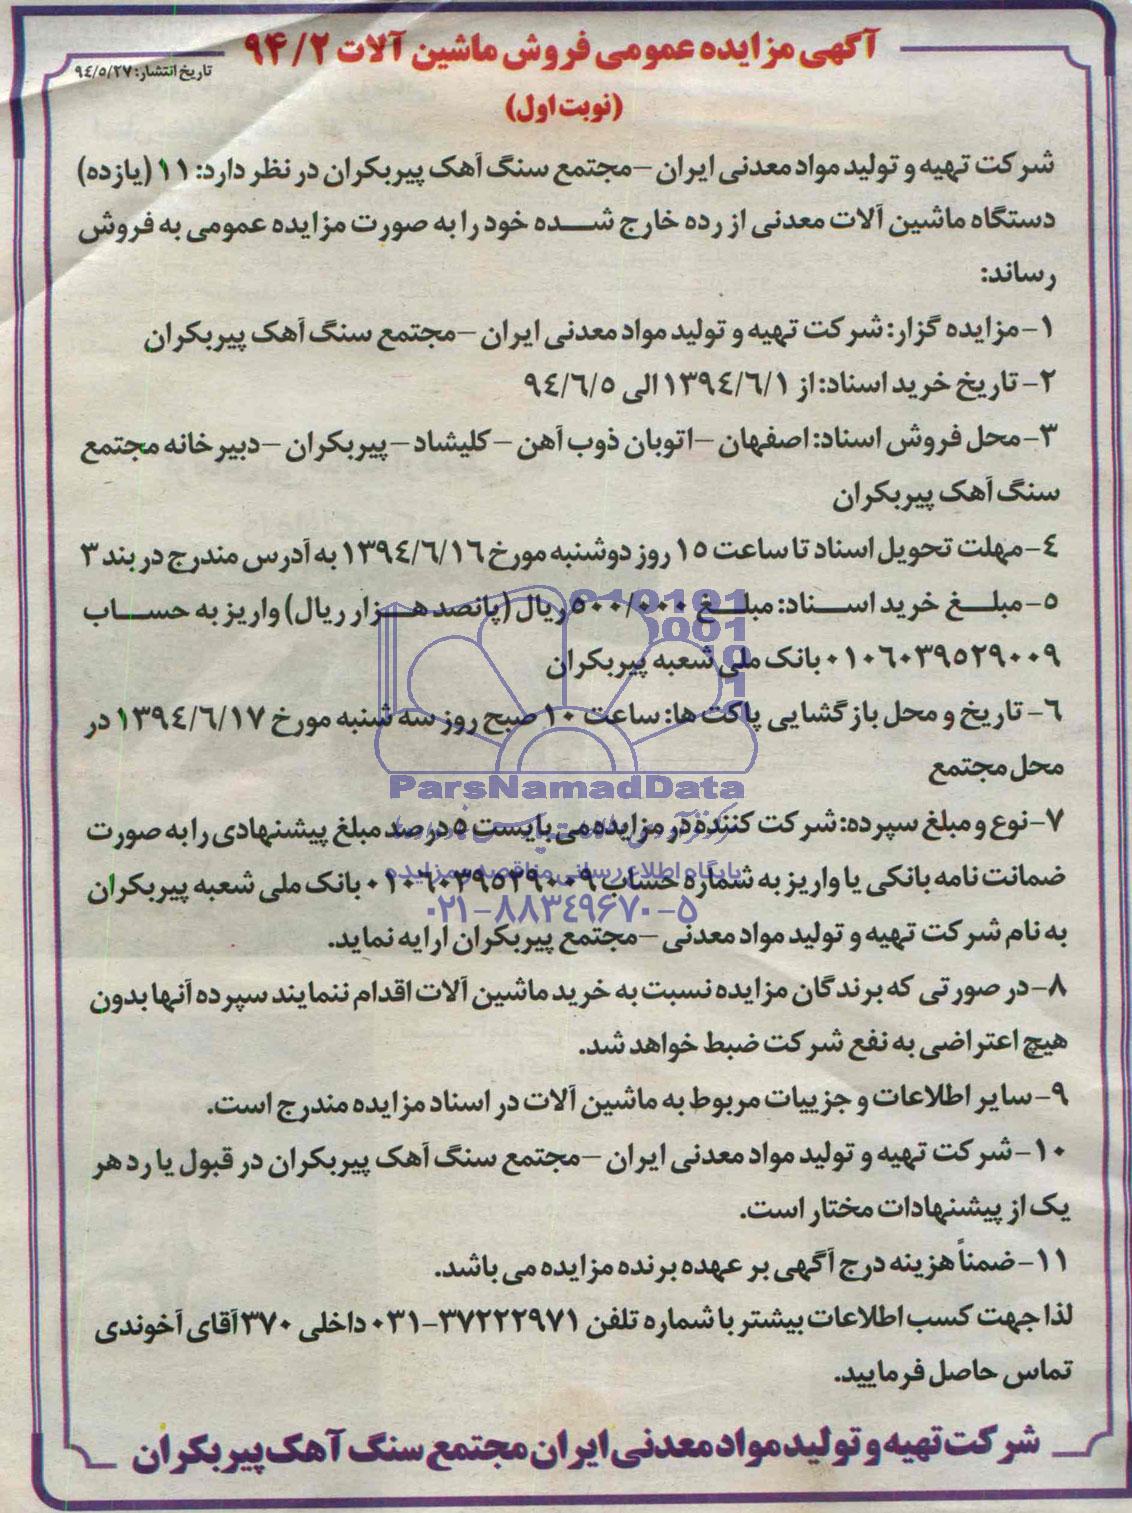 آگهی مزایده عمومی فروش ماشین آلات ۹۴/۲
تاریخ انتشار: ۹٤/٥/۲۷
(نوبت اول)
شرکت تهیه و تولید مواد معدنی ایران –مجتمع سنگ آهک پیربکران در نظر دارد: ۱۱ (یازده)
دستگاه ماشین آلات معدنی از رده خارج شده خود را به صورت مزایده عمومی به فروش
رساند:
۱- مزایده گزار: شرکت تهیه و تولید مواد معدنی ایران –مجتمع سنگ آهک پیربکران
۲- تاریخ خرید اسناد: از ۱۳۹٤/٦/۱ الی ۹٤/٦/٥
۳- محل فروش اسناد: اصفهان –اتوبان ذوب آهن – کلیشاد – پیربکران –دبیرخانه مجتمع
سنگ آهک پیربکران
٤- مهلت تحویل اسناد تا ساعت ۱٥ روز دوشنبه مورخ ۱۳۹٤/٦/۱٦ به آدرس مندرج در بند ۳
٥- مبلغ خرید اسناد: مبلغ ٥۰۰/۰۰۰ ریال (پانصد هزار ریال) واریز به حساب
۰۱۰٦۰۳۹٥۲۹۰۰۹ بانک ملی شعبه پیربکران
٦- تاریخ و محل بازگشایی پاکت ها: ساعت ۱۰ صبح روز سه شنبه مورخ ۱۳۹٤/٦/۱۷ در
محل مجتمع
ParsNamadData
۷- نوع و مبلغ سپرده: شرکت کننده در مزایده می بایست ٥ درصد مبلغ پیشنهادی را به صورت
پایگاه اطلاع رسانی مناقصه و مزایده
ضمانت نامه بانکی یا واریز به شماره حساب ۰۱۰٦۰۳۹٥۲۹۰۰۹ بانک ملی شعبه پیربکران
۰۲۱-۸۸۳۴۹۶۷۰-۵
به نام شرکت تهیه و تولید مواد معدنی –مجتمع پیربکران ارایه نماید.
۸- در صورتی که برندگان مزایده نسبت به خرید ماشین آلات اقدام ننمایند سپرده آنها بدون
هیچ اعتراضی به نفع شرکت ضبط خواهد شد.
۹- سایر اطلاعات و جزییات مربوط به ماشین آلات در اسناد مزایده مندرج است.
۱۰- شرکت تهیه و تولید مواد معدنی ایران –مجتمع سنگ آهک پیربکران در قبول یا رد هر
یک از پیشنهادات مختار است.
۱۱- ضمناً هزینه درج آگهی بر عهده برنده مزایده می باشد.
لذا جهت کسب اطلاعات بیشتر با شماره تلفن ۳۷۲۲۲۹۷۱-۰۳۱ داخلی ۳۷۰ آقای آخوندی
تماس حاصل فرمایید.
شرکت تهیه و تولید مواد معدنی ایران مجتمع سنگ آهک پیربکران